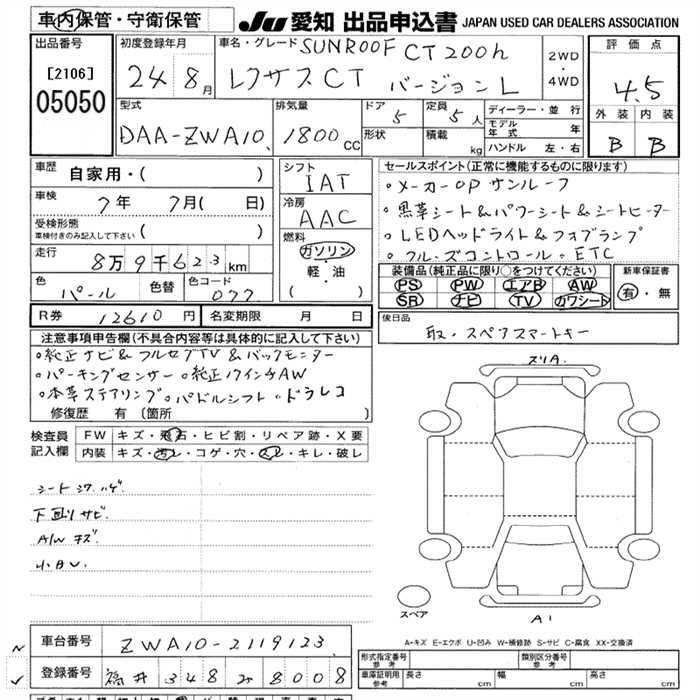 車内保管・守衛保管
JU 愛知 出品申込書 JAPAN USED CAR DEALERS ASSOCIATION
出品番号
[2106]
05050
初度登録年月
24 8月
車名・グレード SUNROOF CT200h
レクサスCT バージョンL
2WD
・
4WD
評価点
4.5
外装 内装
B B
型式
DAA-ZWA10
排気量
1800 CC
ドア 5
形状
定員 5人
積載 kg
ディーラー・並行
モデル年式 年
ハンドル 左・右
車歴
自家用・( )
車検
7年 7月( 日)
受検形態
車検付きのみ記入して下さい ( )
走行
8万9千623km
色 パール
色替
色コード 077
シフト
IAT
冷房
AAC
燃料
ガソリン
・
軽・油
( )
セールスポイント(正常に機能するものに限ります)
・メーカーOPサンルーフ
・黒革シート&パワーシート&シートヒーター
・LEDヘッドライト&フォグランプ
・クルーズコントロール・ETC
装備品(純正品に限り○をつけてください)
PS PW エアB AW
SR ナビ TV カワシート
新車保証書
有・無
R券 12610円
名変期限 月 日
後日品
取・スペアスマートキー
注意事項申告欄(不具合内容等は具体的に記入して下さい)
・純正ナビ&フルセグTV&バックモニター
・パーキングセンサー・純正17インチAW
・本革ステアリング・パドルシフト・ドラレコ
修復歴 有 〔箇所
検査員
記入欄
FW キズ・飛石・ヒビ割・リペア跡・X要
内装 キズ・汚レ・コゲ・穴・スレ・キレ・破レ
シートシワ、ハゲ
下廻りサビ
A/W キズ
小B U
ズリA
スペア
A1
A-キズ E-エクボ U-凹み W-補修跡 S-サビ C-腐食 XX-交換済
車台番号 ZWA10-2119123
登録番号 福井 348 8008
形式指定番号
参考
類別区分番号
参考
車庫証明用
参考
長さ cm
幅 cm
高さ cm